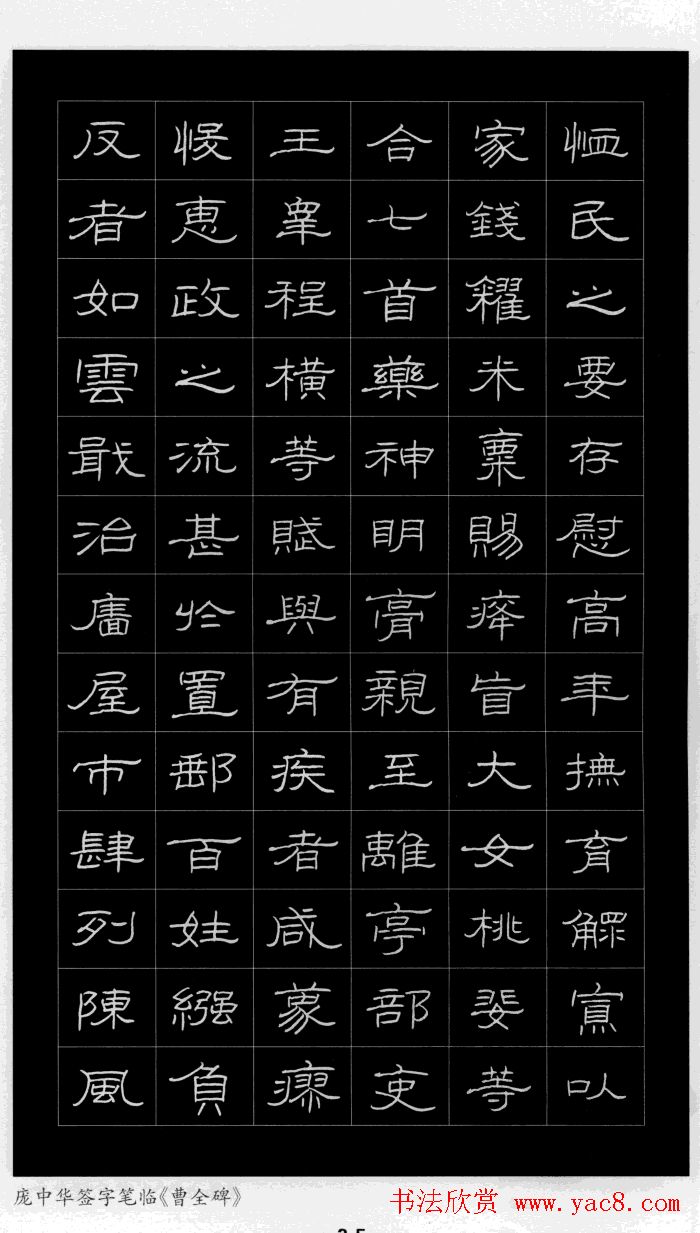 恤民之要存慰高年撫育鰥寡以
家錢糴米粟賜瘽盲大女桃婓等
合七首藥神明膏親至離亭部吏
王宰程橫等賦與有疾者咸蒙瘳
悛惠政之流甚於置郵百姓繦負
反者如雲戢治廧屋市肆列陳風
庞中华签字笔临《曹全碑》
书法欣赏 www.yac8.com